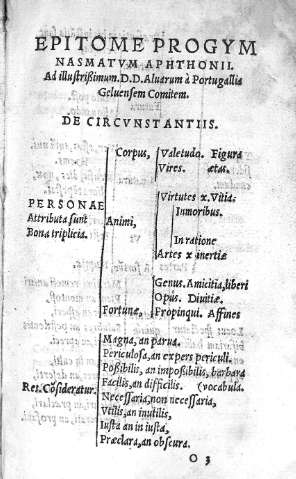 EPITOME PROGYM
NASMATVM APHTHONII.
Ad illustrißimum. D. D. Aluarum à Portugallia
Geluensem Comitem.
DE CIRCVNSTANTIIS.
Corpus, Valetudo. Figura
Vires. ætas.
Virtutes x. Vitia:
PERSONAE Inmoribus.
Attributa sunt Animi,
Bona triplicia. In ratione
Artes x inertiæ
Genus. Amicitia, liberi
Opus. Diuitiæ.
Fortunæ, Propinqui. Affines
Magna, an parua.
Periculosa, an expers periculi.
Poßibilis, an impoßibilis, barbara
Rei. Cōsideratur. Facilis, an difficilis. (vocabula.
Necessaria, non necessaria,
Vtilis, an inutilis,
Iusta an in iusta,
Præclara, an obscura.
O 3